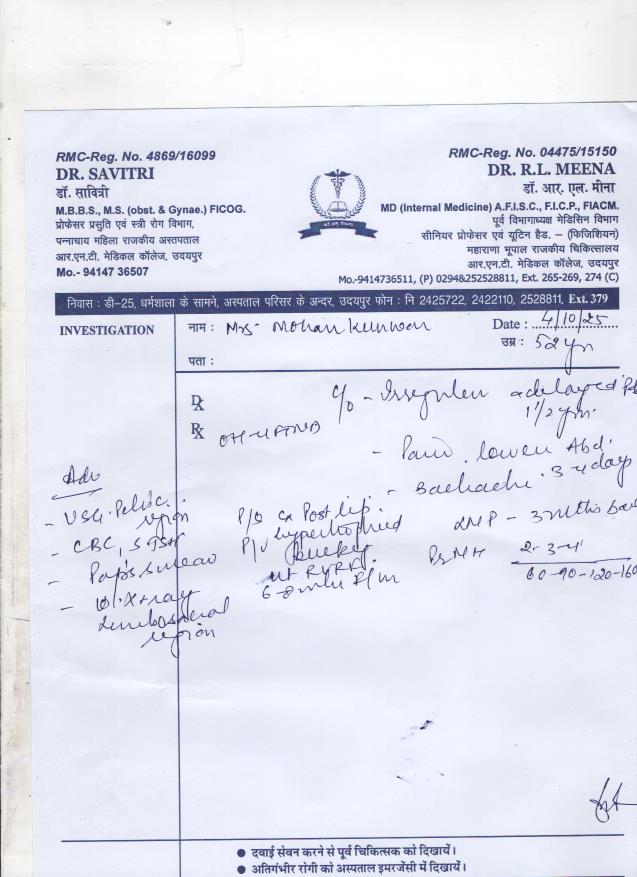 RMC-Reg. No. 4869/16099
DR. SAVITRI
डॉ. सावित्री
M.B.B.S., M.S. (obst. & Gynae.) FICOG.
प्रोफेसर प्रसुति एवं स्त्री रोग विभाग,
पन्नाचाय महिला राजकीय अस्तपताल
आर.एन.टी. मेडिकल कॉलेज, उदयपुर
Mo.- 94147 36507
RMC-Reg. No. 04475/15150
DR. R.L. MEENA
डॉ. आर. एल. मीना
MD (Internal Medicine) A.F.I.S.C., F.I.C.P., FIACM.
पूर्व विभागाध्यक्ष मेडिसिन विभाग
सीनियर प्रोफेसर एवं यूटिन हैड. – (फिजिशियन)
महाराणा भूपाल राजकीय चिकित्सालय
आर.एन.टी. मेडिकल कॉलेज, उदयपुर
Mo.-9414736511, (P) 0294&252528811, Ext. 265-269, 274 (C)
निवास : डी-25, धर्मशाला के सामने, अस्पताल परिसर के अन्दर, उदयपुर फोन : नि 2425722, 2422110, 2528811, Ext. 379
INVESTIGATION
नाम : Mrs. Mohan Kunwar
Date : 4/10/25
उम्र : 52 yr
पता :
C/o - Irregular & delayed
1 1/2 yr.
- Pain lower Abd.
- Backache 3-4 days
LMP - 3 mths back
PrMH 2-3-4
60-90-120-160
Adv
- USG. Pelvic region
- CBC, S.TSH
- Pap's smear
- X-ray
Lumbosacral
region
P/S Cx Post lip
hypertrophied
P/V
ut RVRF
● दवाई सेवन करने से पूर्व चिकित्सक को दिखायें।
● अतिगंभीर रोगी को अस्पताल इमरजेंसी में दिखायें।